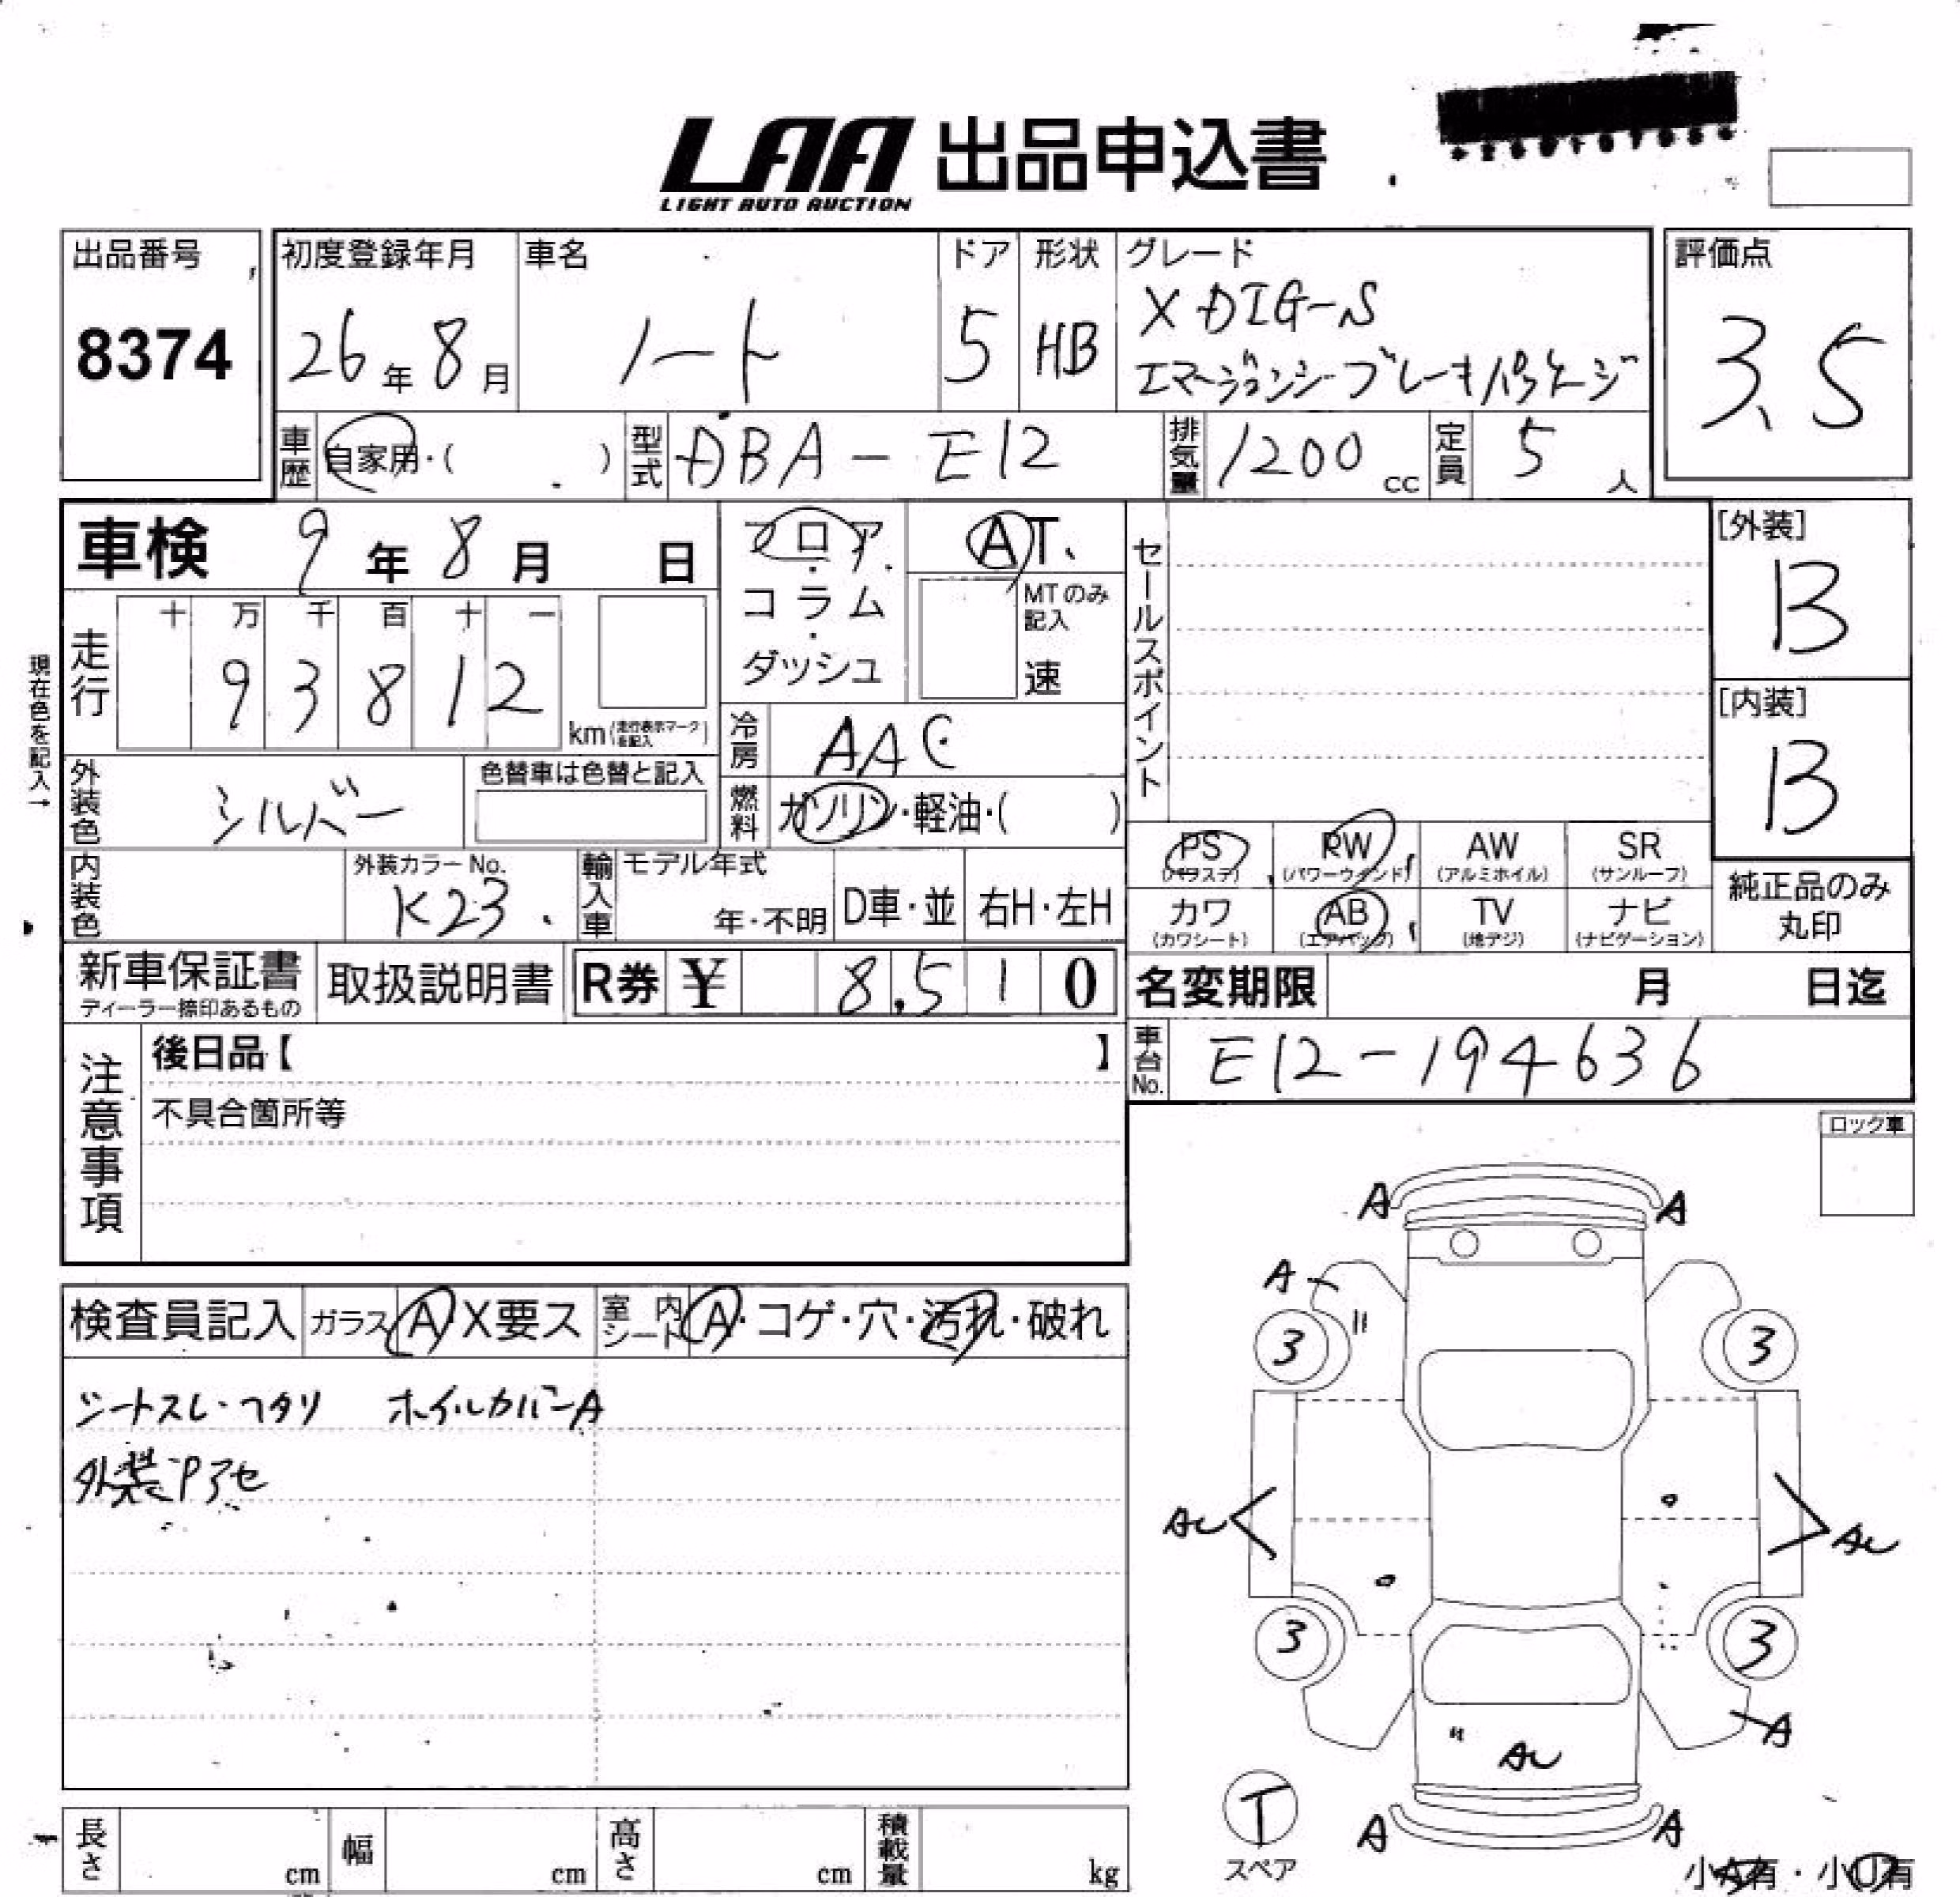 LAA 出品申込書
LIGHT AUTO AUCTION
出品番号
8374
初度登録年月
26年8月
車名
ノート
ドア
5
形状
HB
グレード
X DIG-S
エマージェンシーブレーキパッケージ
評価点
3.5
車歴 自家用・( )
型式 DBA-E12
排気量 1200cc
定員 5人
車検 9年8月 日
フロア・コラム・ダッシュ
AT
MTのみ記入
速
セールスポイント
[外装]
B
[内装]
B
走行 十 万 千 百 十 一
9 3 8 1 2
km(走行表示マークを記入)
現在色を記入→
冷房 AAC
燃料 ガソリン・軽油・( )
外装色 シルバー
色替車は色替と記入
内装色
外装カラーNo.
K23
輸入車 モデル年式
年・不明
D車・並
右H・左H
PS
(パワステ)
PW
(パワーウインド)
AW
(アルミホイル)
SR
(サンルーフ)
カワ
(カワシート)
AB
(エアバッグ)
TV
(地デジ)
ナビ
(ナビゲーション)
純正品のみ
丸印
新車保証書
ディーラー捺印あるもの
取扱説明書
R券 ¥ 8,510
名変期限 月 日迄
車台No. E12-194636
注意事項
後日品【 】
不具合箇所等
ロック車
検査員記入 ガラス A X要ス 室内シート A・コゲ・穴・汚れ・破れ
シートスレ・ヘタリ ホイルカバーA
A A
A
3 3
AU AU
3 3
AU
A
A A
T
スペア
小A有・小U有
長さ cm
幅 cm
高さ cm
積載量 kg